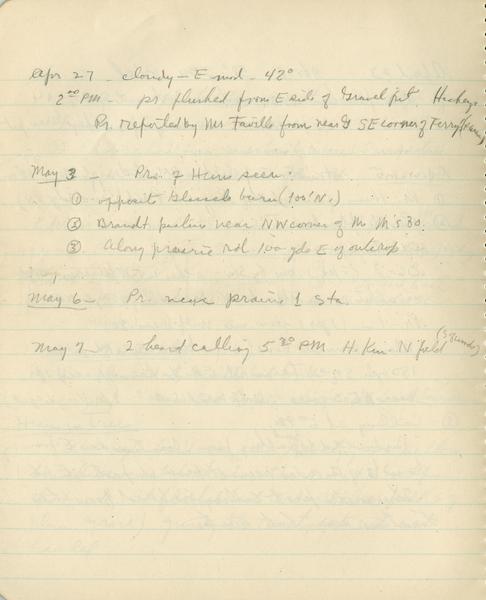 Apr 27 - cloudy - E mod - 42°
2 00 PM - pr flushed from E side of Gravel pit
Pr. reported by Mr Faville from near SE corner of Ferry
May 3 - Prs. of Huns seen:
① opposite barn (100' N.)
② Brandt pasture near NW corner of M M's 80.
③ Along prairie rd. 100 yds E of outcrop
May 6 - Pr. near prairie 1 sta.
May 7 - 2 heard calling 5 30 PM H. Kin. N field